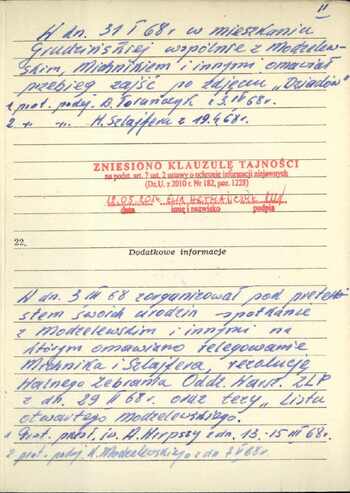 11
W dn. 31 I 68 r w mieszkaniu
Grudzińskiej wspólnie z Modzelew-
skim, Michnikiem i innymi omawiał
przebieg zajść po zdjęciu "Dziadów"
1. prot. podej. B. Toruńczyk z 3. IV 68 r.
2. -"- -"- H. Szlajfera z 19.4.68 r.
ZNIESIONO KLAUZULĘ TAJNOŚCI
na podst. art. 7 ust. 2 ustawy o ochronie informacji niejawnych
(Dz.U. z 2010 r. Nr 182, poz. 1228)
12.03.2014 EWA
data imię i nazwisko podpis
22.
Dodatkowe informacje
W dn. 3 III 68 zorganizował pod pretek-
stem swoich urodzin spotkanie
z Modzelewskim i innymi na
którym omawiano relegowanie
Michnika i Szlajfera, rezolucję
Walnego Zebrania Oddz. Warsz. ZLP
z dn. 29 II 68 r. oraz tezy "Listu
otwartego Modzelewskiego.
1 Prot. przesł. św. A. z dn. 13.-15 III 68 r.
2 prot. podej. K. Modzelewskiego z dn 68 r.